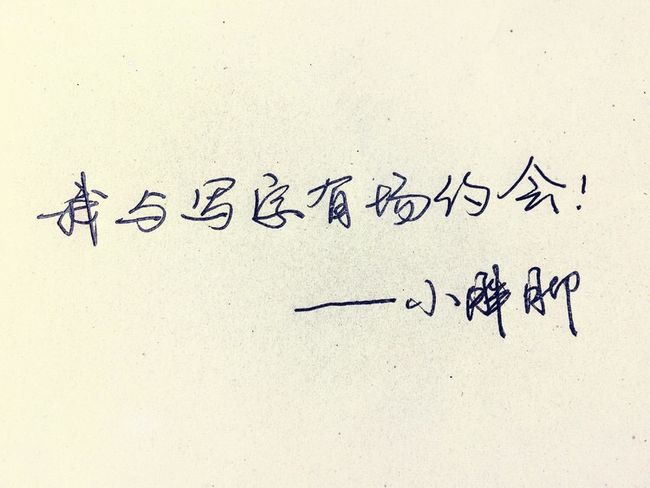 我与写字有场约会!
——小胖聊